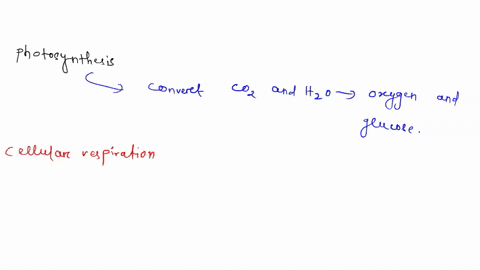 photosynthesis
convert CO2 and H2O → oxygen and
glucose.
cellular respiration